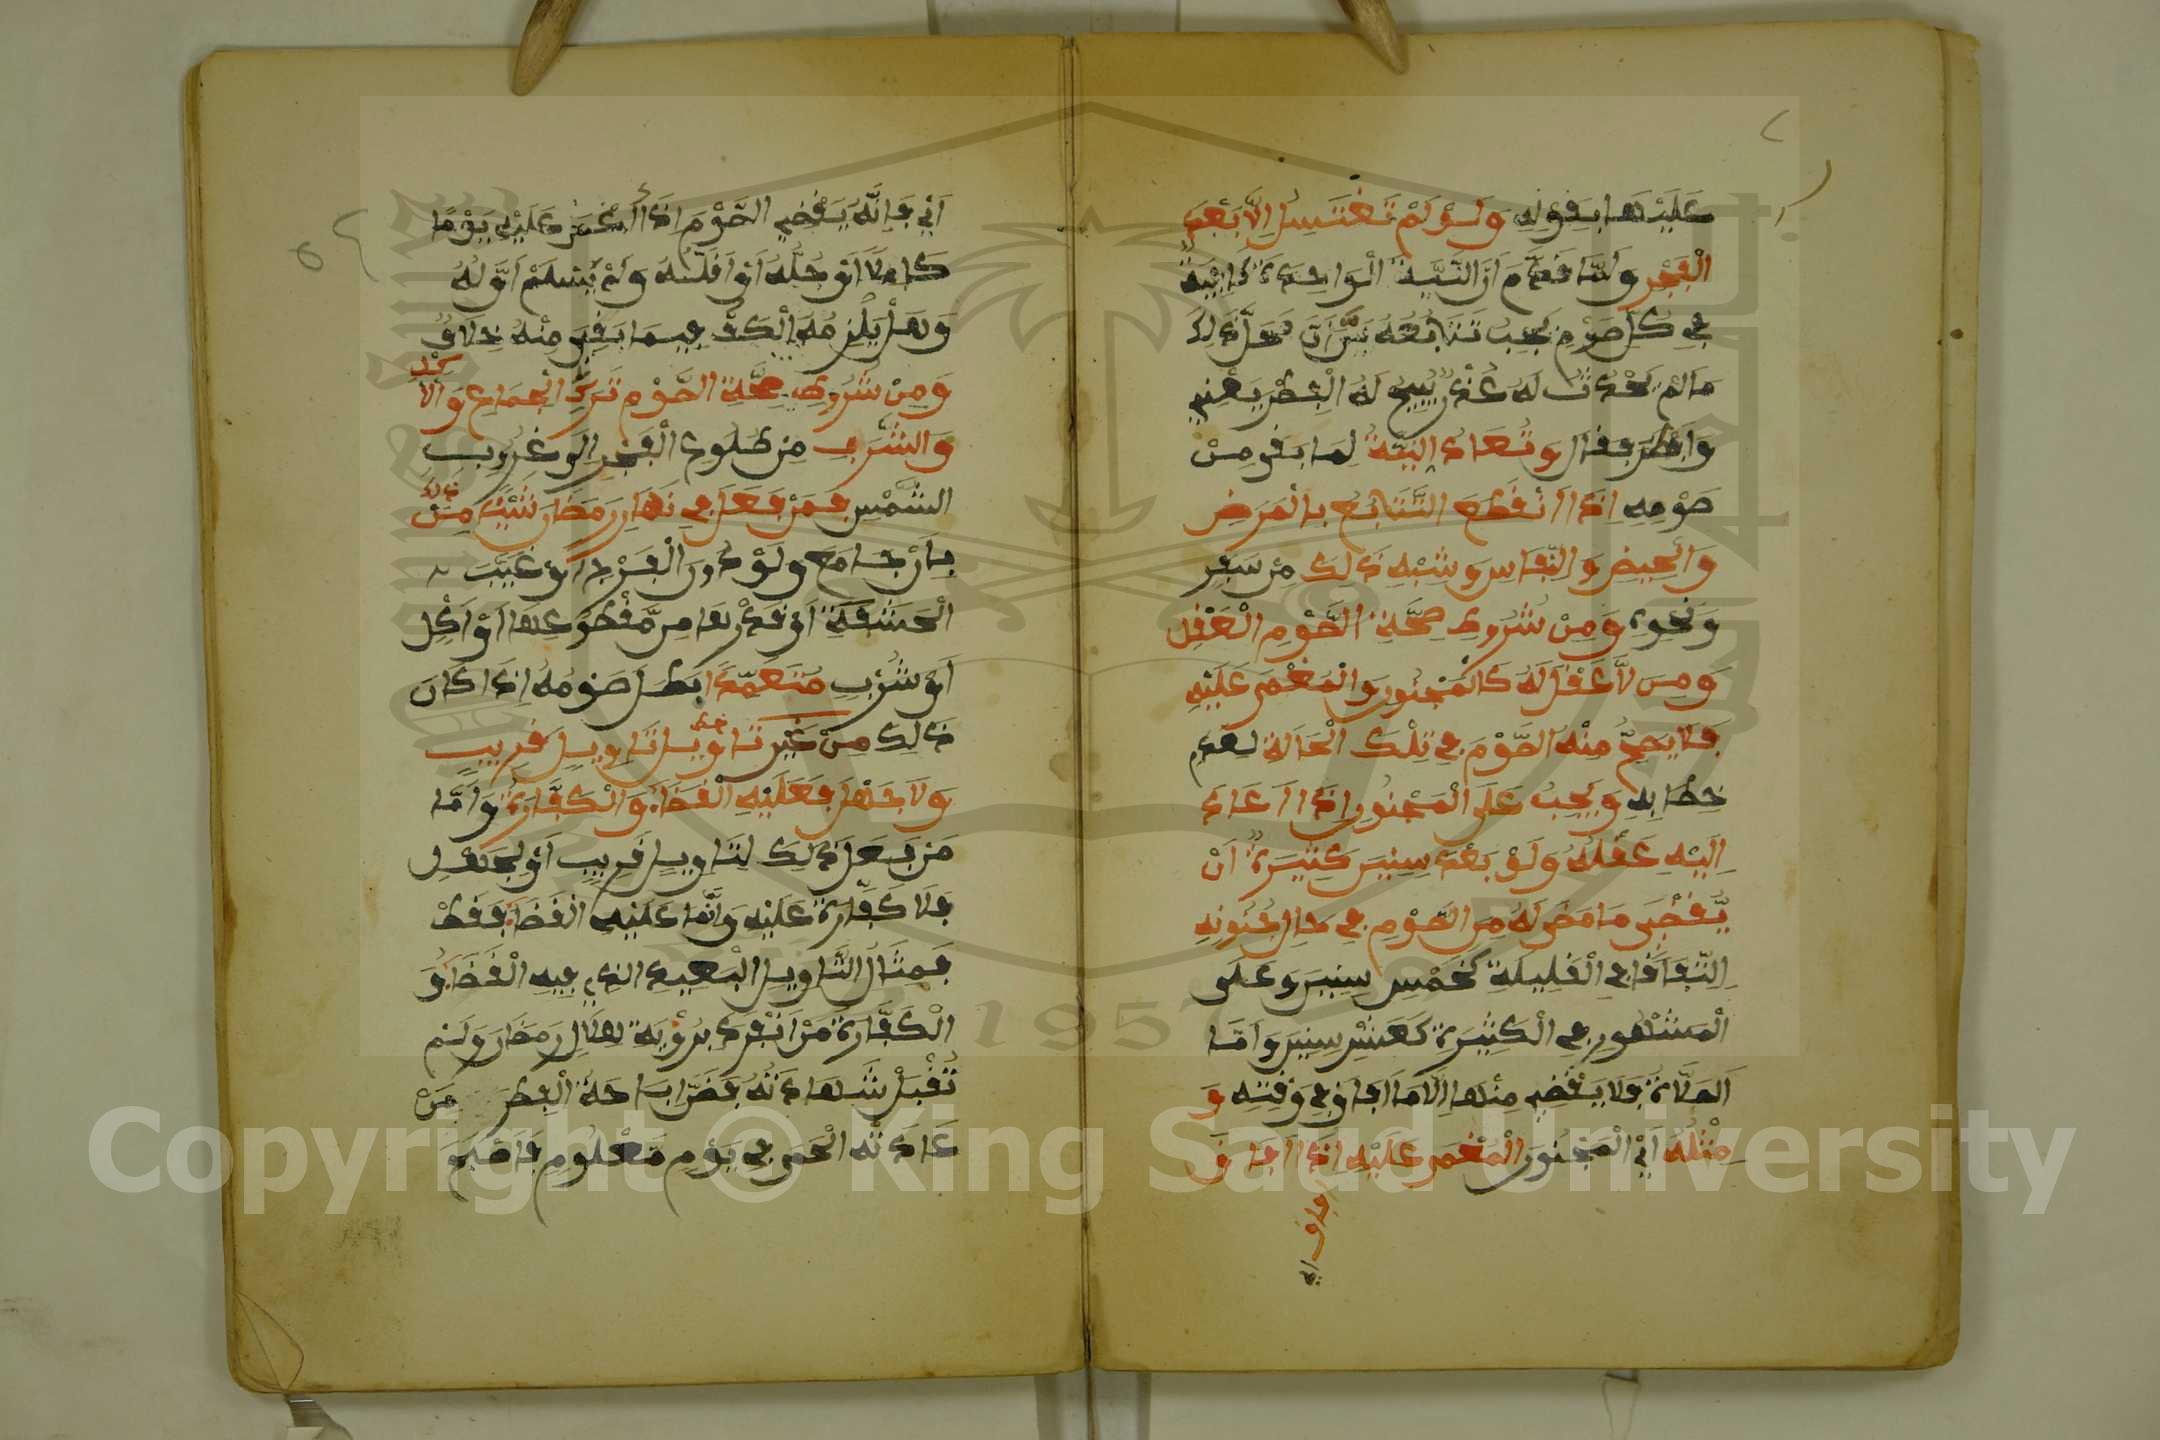 عليها بقوله ولو لم تغتسل الا بعد
الفجر ولما قدم ان النية الواحدة كافية
في كل صوم يجب تتابعه بين ان محل ذلك
ما لم يحدث له عذر يبيح له الفطر يعني
وافطر فقال وتعاد النية لما بقي من
صومه اذا انقطع التتابع بالمرض
والحيض والنفاس وشبه ذلك من سفر
ونحوه ومن شروط صحة الصوم العقل
ومن لا عقل له كالمجنون والمغمى عليه
فلا يصح منه الصوم في تلك الحالة لعدم
خطابه ويجب على المجنون اذا عاد
اليه عقله ولو بعد سنين كثيرة ان
يقضي ما مضى له من الصوم في حال جنونه
اتفاقا في القليلة كخمس سنين وعلى
المشهور في الكثيرة كعشر سنين واما
الصلاة فلا يقضي منها الا ما افاق في وقته و
مثله اي المجنون المغمى عليه اذا افاق
اي فانه يقضي الصوم اذا اغمي عليه يوما
كاملا او جله او اقله ولم يسلم اوله
وهل يلزمه الكف فيما بقي منه خلاف
ومن شروط صحة الصوم ترك الجماع والاكل
والشرب من طلوع الفجر الى غروب
الشمس فمن فعل في نهار رمضان شيئا من ذلك
بان جامع ولو دون الفرج او غيب
الحشفة او قدرها من مقطوعها او اكل
او شرب متعمدا بطل صومه اذا كان
ذلك من غير تاويل تاويل قريب
ولا جهل فعليه القضاء والكفارة واما
من فعل ذلك لتاويل قريب او لجهل
فلا كفارة عليه وانما عليه القضاء فقط
فمثال التاويل البعيد الذي فيه القضاء و
الكفارة من انفرد برؤية هلال رمضان ولم
تقبل شهادته فظن اباحة الفطر من
عادته الحمى في يوم معلوم فاصبح
Copyright © King Saud University
1957